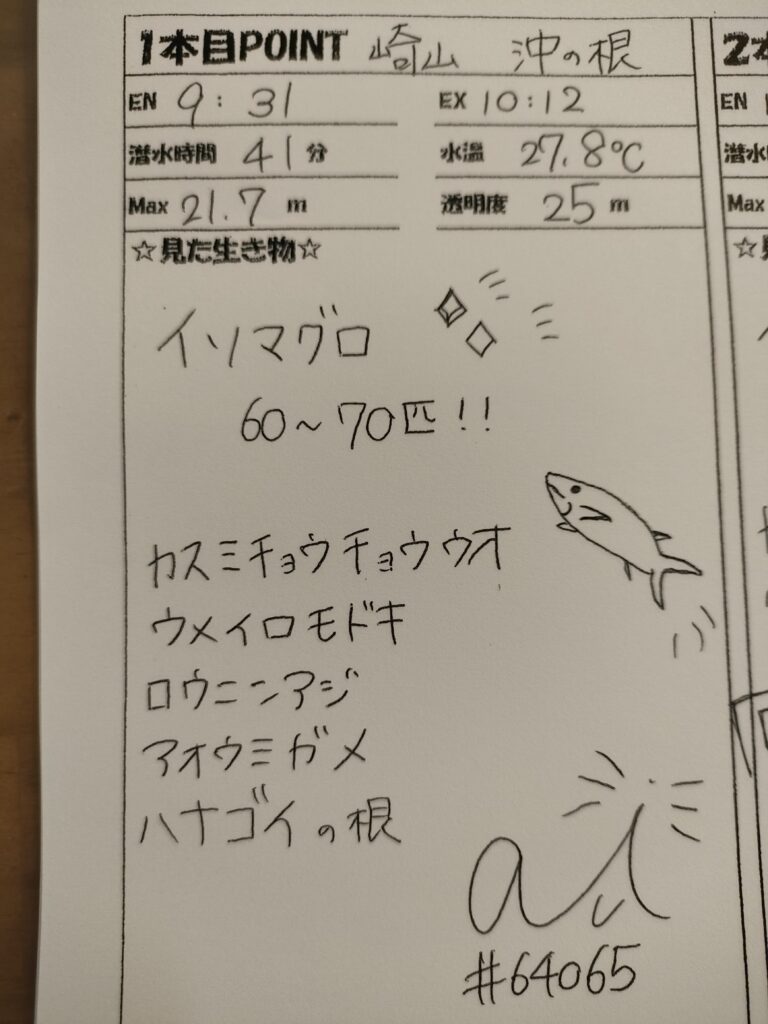 1本目POINT 崎山 沖の根
EN 9:31 EX 10:12
潜水時間 41分 水温 27.8℃
Max 21.7 m 透明度 25 m
☆見た生き物☆
イソマグロ
60~70匹!!
カスミチョウチョウウオ
ウメイロモドキ
ロウニンアジ
アオウミガメ
ハナゴイの根
#64065
2本
EN
潜水
Max
☆見